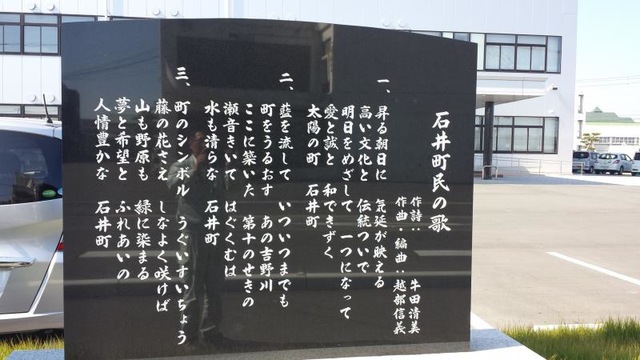 石井町民の歌
作詩：牛田清美
作曲・編曲：越部信義
一、昇る朝日に 気延が映える
高い文化と 伝統ついで
明日をめざして 一つになって
愛と誠と 和できずく
太陽の町 石井町
二、藍を流して いついつまでも
町をうるおす あの吉野川
ここに築いた 第十のせきの
瀬音きいて はぐくむは
水も清らな 石井町
三、町のシンボル うぐいすいちょう
藤の花さえ しなよく咲けば
山も野原も 緑に染まる
夢と希望と ふれあいの
人情豊かな 石井町